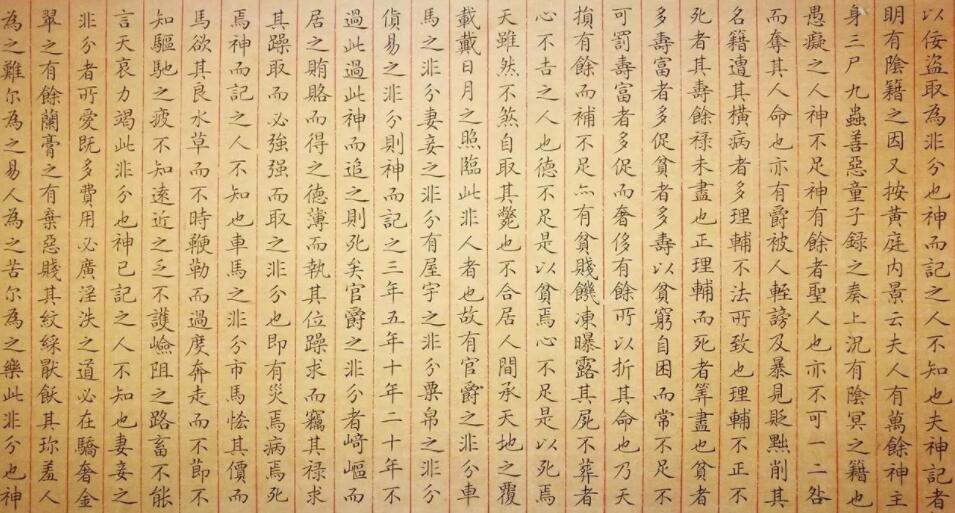 以佞盜取為非分也神而記之人不知也夫神記者
明有陰籍之因又按黃庭內景云夫人有萬餘神主
身三尸九蟲善惡童子録之奏上況有陰冥之籍也
愚癡之人神不足神有餘者聖人也亦不可一二咎
而奪其人命也亦有爵被人輕謗及暴見貶黜削其
名籍遭其橫病者多理輔不法所致也理輔不正不
死者其壽餘禄未盡也正理輔而死者筭盡也貧者
多壽富者多促貧者多壽以貧窮自困而常不足不
可罰壽富者多促而奢侈有餘所以折其命也乃天
損有餘而補不足亦有貧賤饑凍曝露其屍不葬者
心不吉之人也德不足是以貧焉心不足是以死焉
天雖然不然自取其斃也不合居人間承天地之覆
載戴日月之照臨此非人者也故有官爵之非分車
馬之非分妻妾之非分有屋宇之非分粟帛之非分
貨易之非分則神而記之三年五年十年二十年不
過此過此神而追之則死矣官爵之非分者崎嶇而
居之賄賂而得之德薄而執其位躁求而竊其禄求
其躁取而必強强而取之非分也即有災焉病焉死
焉神而記之人不知也車馬之非分市馬恡其價而
馬欲其良水草而不時鞭勒而過度奔走而不節不
知驅馳之疲不知遠近之乏不護嶮阻之路畜不能
言天哀力竭此非分也神已記之人不知也妻妾之
非分者所愛既多費用必廣淫泆之道必在驕奢金
翠之有餘蘭膏之有棄惡賤其紋綵厭飫其珎羞人
為之難尔為之易人為之苦尔為之樂此非分也神